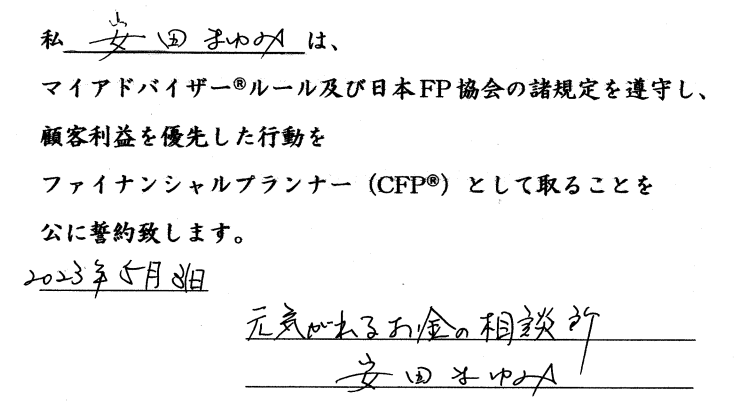 私 安田まゆみ は、
マイアドバイザー®ルール及び日本FP協会の諸規定を遵守し、
顧客利益を優先した行動を
ファイナンシャルプランナー（CFP®）として取ることを
公に誓約致します。
2023年5月31日
元気がでるお金の相談所
安田まゆみ